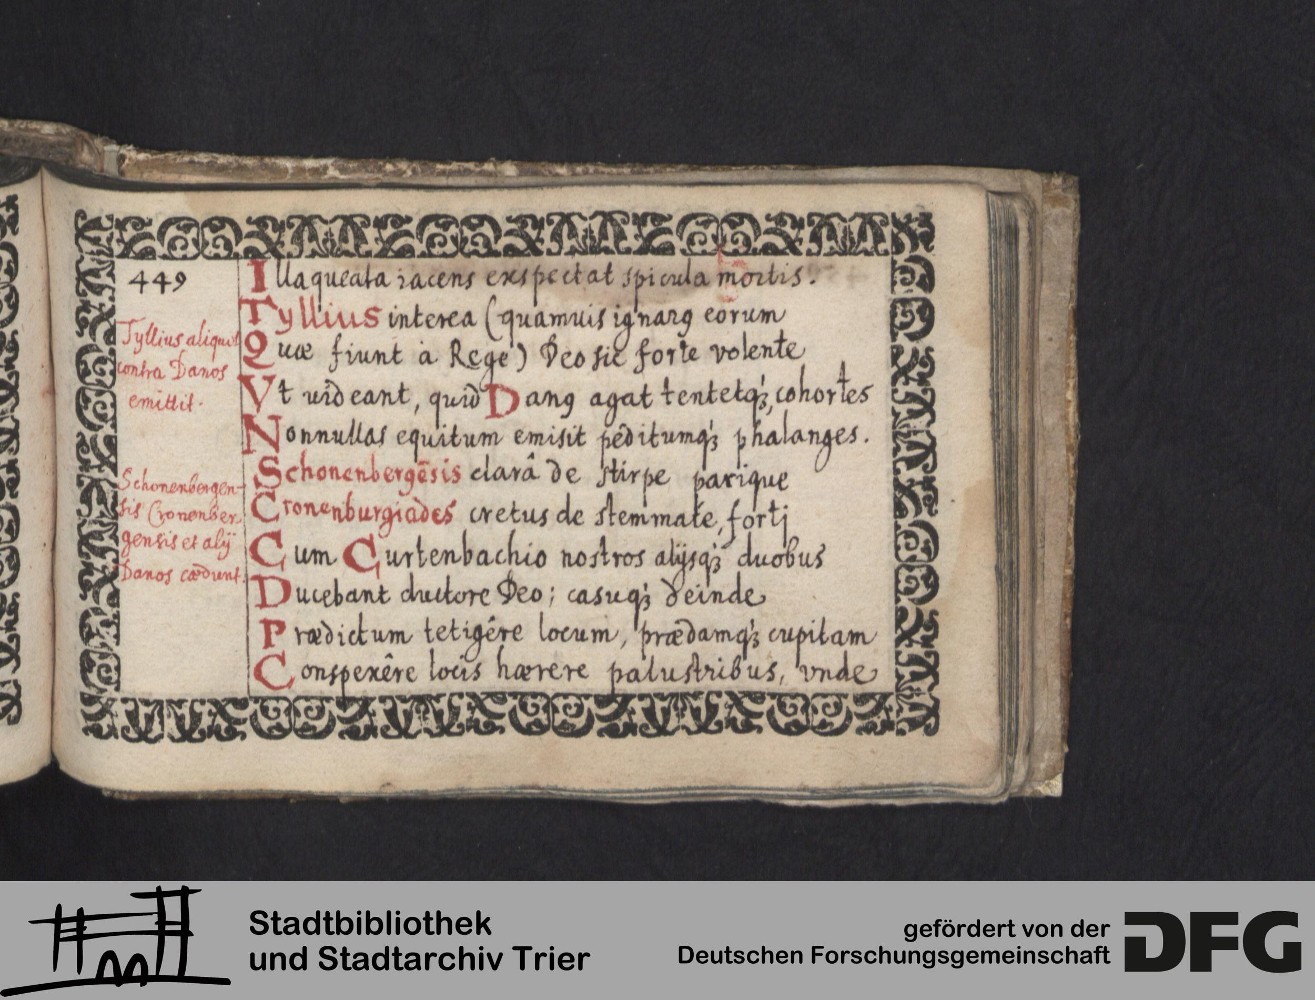 449
Illaqueata iacens exspectat spicula mortis.
Tyllius interea (quamuis ignarꝯ eorum
Quæ fiunt à Rege) Deo sic forte volente
Vt uideant, quid Danꝯ agat tentetq́ꝫ, cohortes
Nonnullas equitum emisit peditumq́ꝫ phalanges.
Schonenbergēsis clarâ de stirpe parique
Cronenburgiades cretus de stemmate, fortj
Cum Curtenbachio nostros alijsq́ꝫ duobus
Ducebant ductore Deo; casuq́ꝫ deinde
Prædictum tetigêre locum, prædamq́ꝫ cupitam
Conspexêre locis hærere palustribus, vnde
Tyllius aliquot
contra Danos
emittit.
Schonenbergen-
sis Cronenber
gensis et alij
Danos cædunt.
Stadtbibliothek
und Stadtarchiv Trier
gefördert von der
Deutschen Forschungsgemeinschaft
DFG